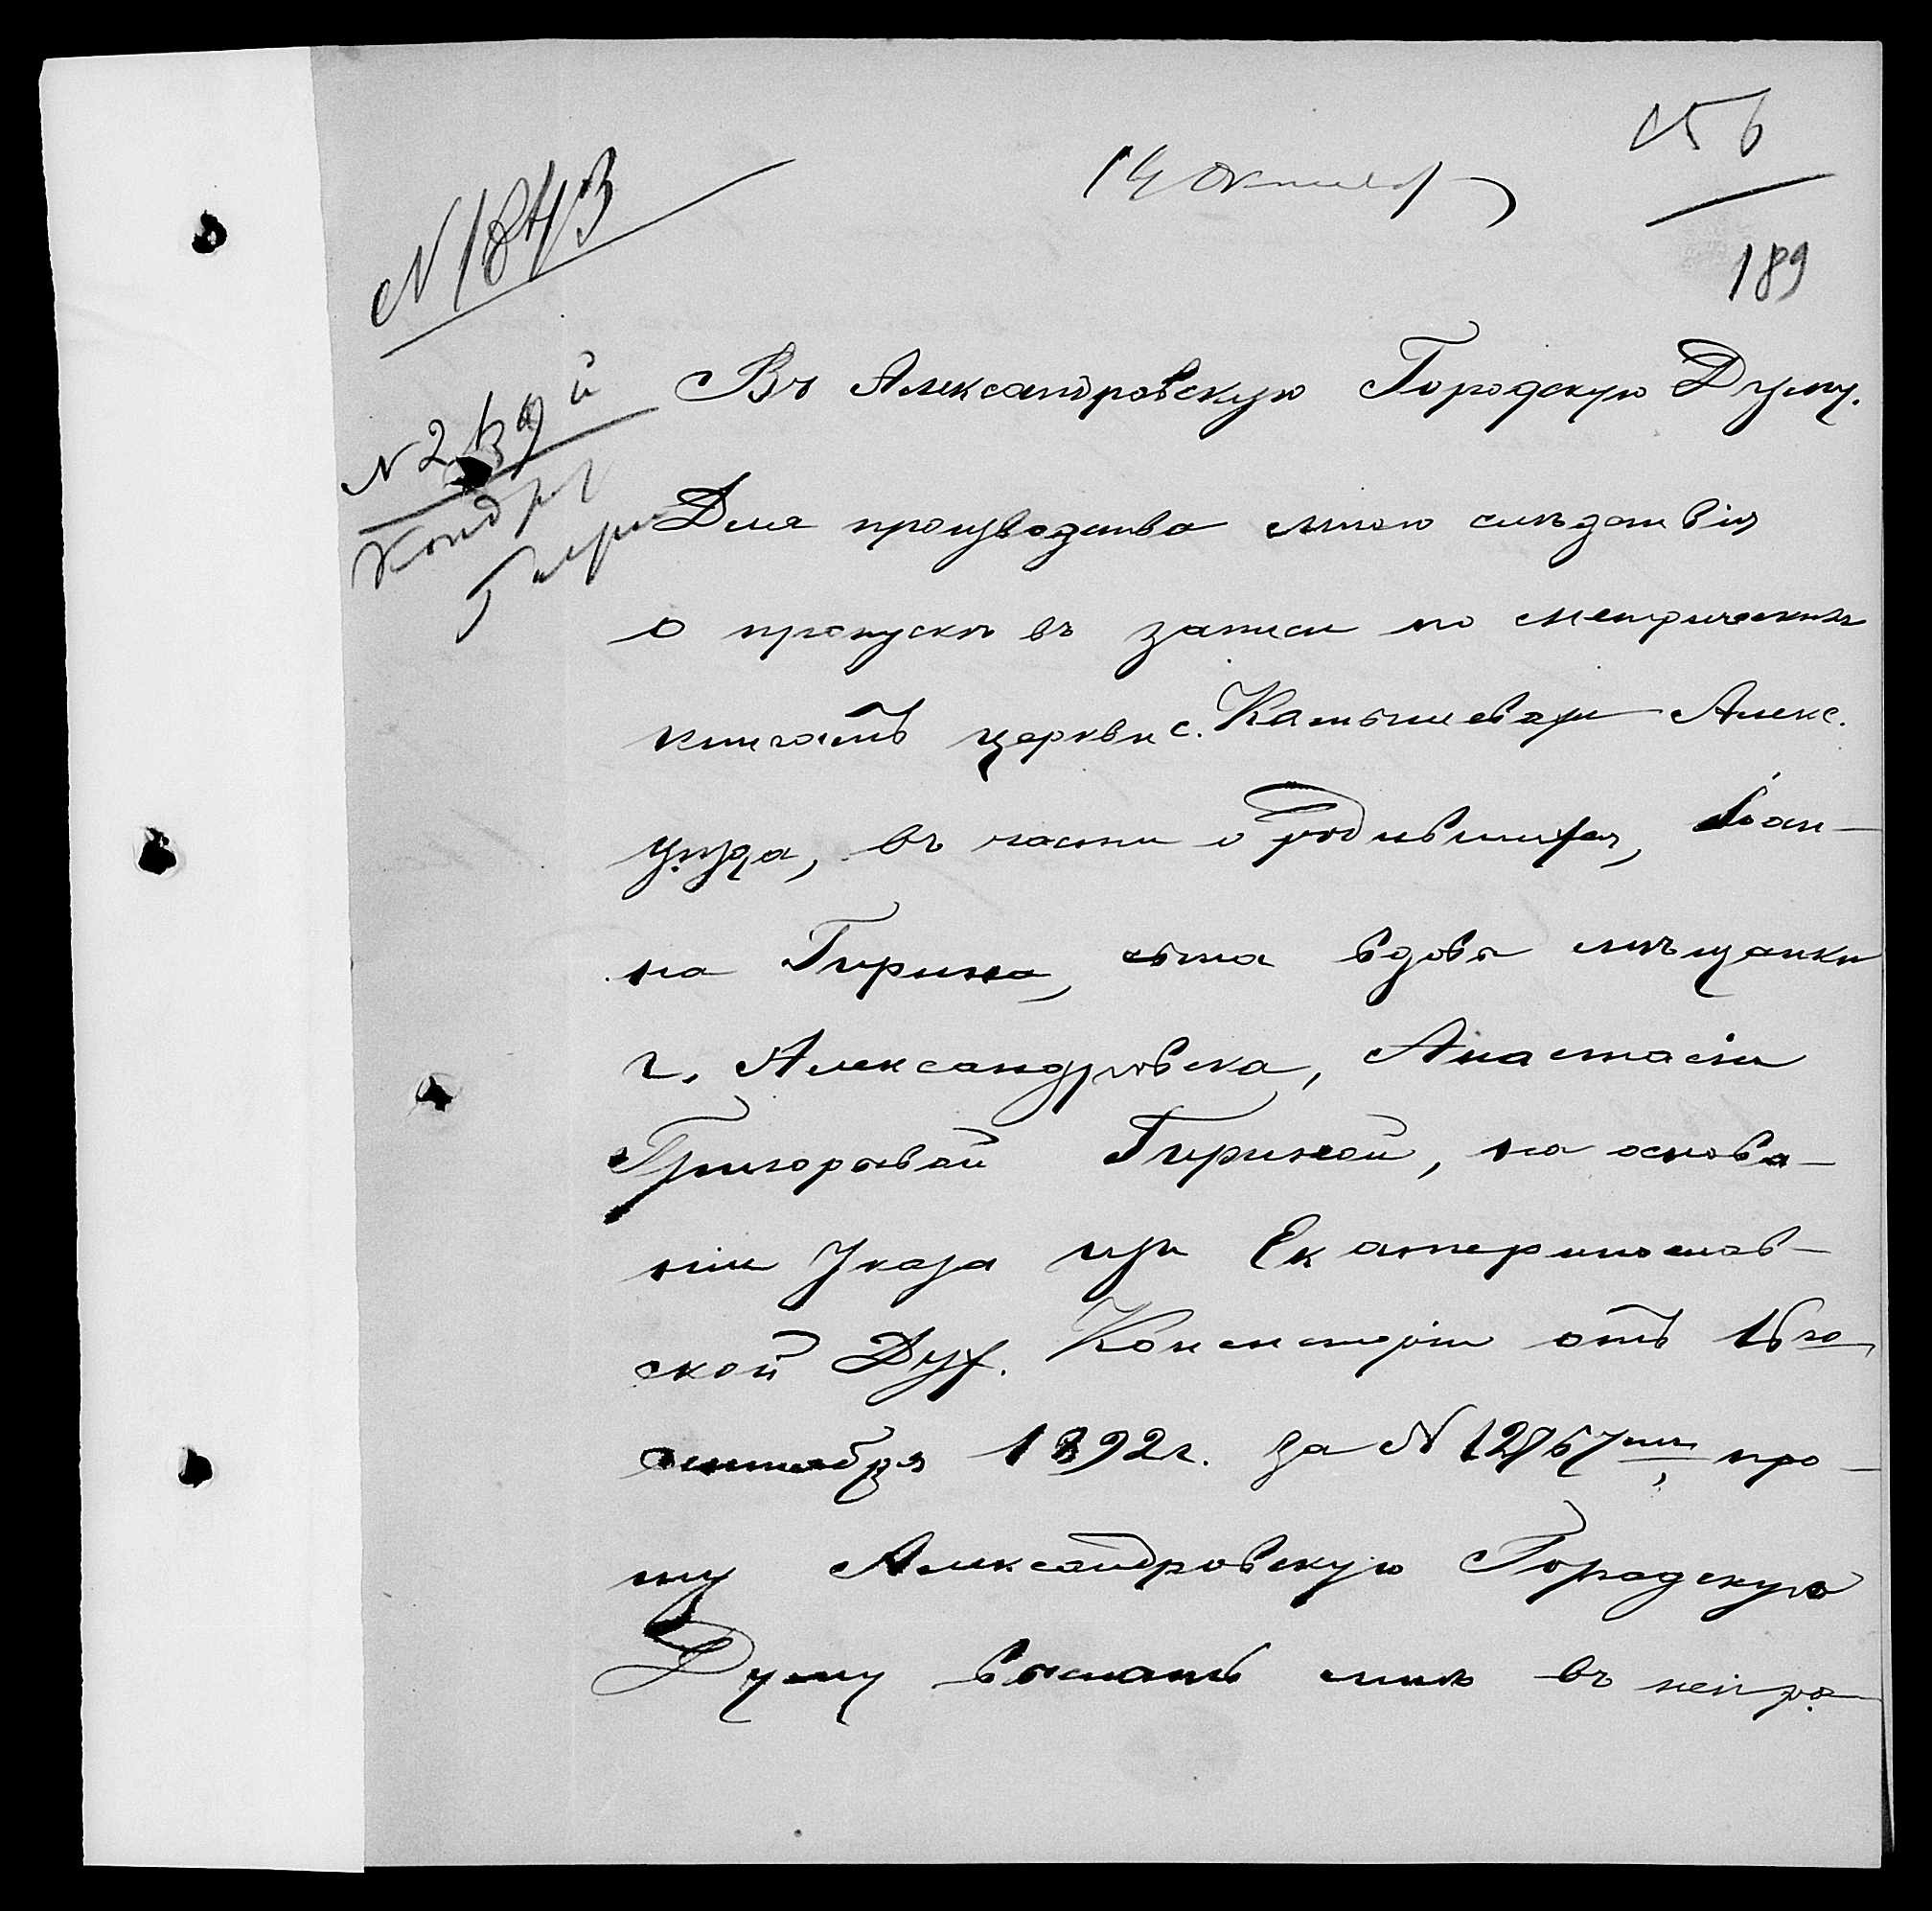 156
14 Октября
189
N 1843
N 269 й
Въ Александровскую Городскую Думу.
Для производства мною слѣдствія
о пропускѣ въ записи по метрическимъ
книгамъ церкви с. Камышевахи Алекс.
уѣзда, въ части о родившихся, Іоан-
на Гирина, сына вдовы мѣщанки
г. Александровска, Анастасіи
Григорьевой Гириной, на основа-
ніи Указа изъ Екатеринослав-
ской Дух. Консисторіи отъ 16го
сентября 1892 г. за N 12967мъ, про-
шу Александровскую Городскую
Думу выслать мнѣ въ непро-